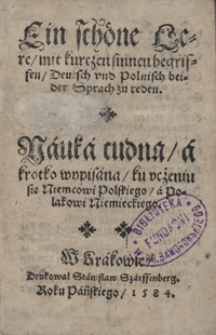 Ein schöne Le-
re/ mit kurczen sinnen begrif-
fen/ Deutsch vnd Polnisch bei-
der Sprach zu reden.
Náuká cudna/ á
krotko wypisána/ ku vczeniu
sie Niemcowi Polskiego/ á Po-
lakowi Niemieckiego.
BIBLIOTEKA
W Krakowie
Drukował Stánisław Szárffenberg.
Roku Páńskiego/ 1584.